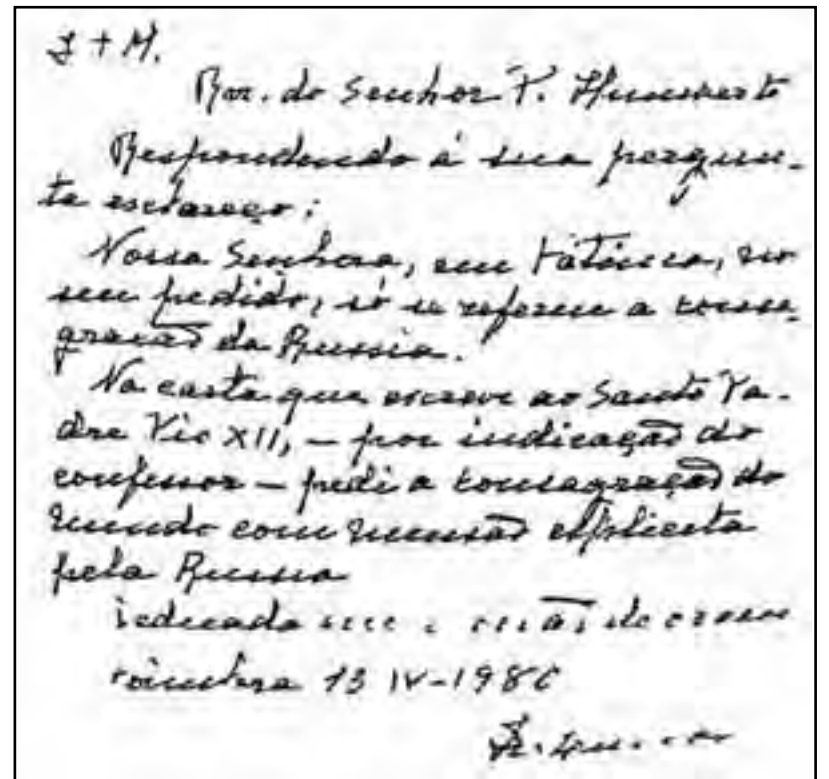 J + M.
Rev. do Senhor P. Humberto
Respondendo á sua pergun-
ta esclareço:
Nossa Senhora, em Fátima, no
seu pedido, só se referiu a consa-
gração da Russia.
Na carta que escrevi ao Santo Pa-
dre Pio XII, – por indicação do
confessor – pedi a consagração do
mundo com mensão explicita
pela Russia
Dedicada em
Coimbra 13 IV-1980